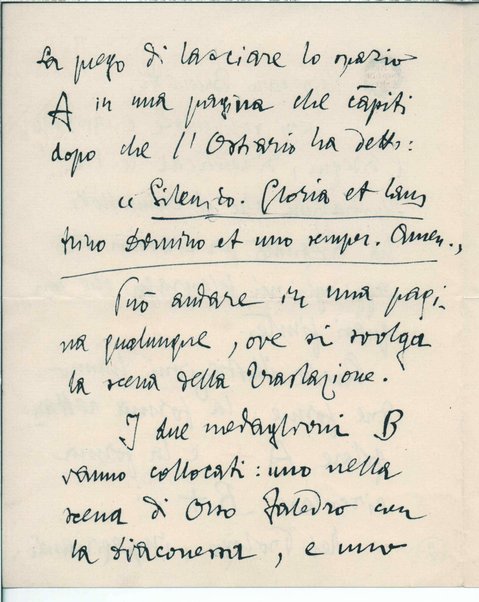 La prego di lasciare lo spazio
A in una pagina che càpiti
dopo che l'Ostiario ha detto:
« Silenzio. Gloria et laus
trino Domino et uno semper. Amen.»
Può andare in una pagi-
na qualunque, ove si svolga
la scena della Traslazione.
I due medaglioni B
vanno collocati: uno nella
scena di Orso Faledro con
la diaconessa, e uno